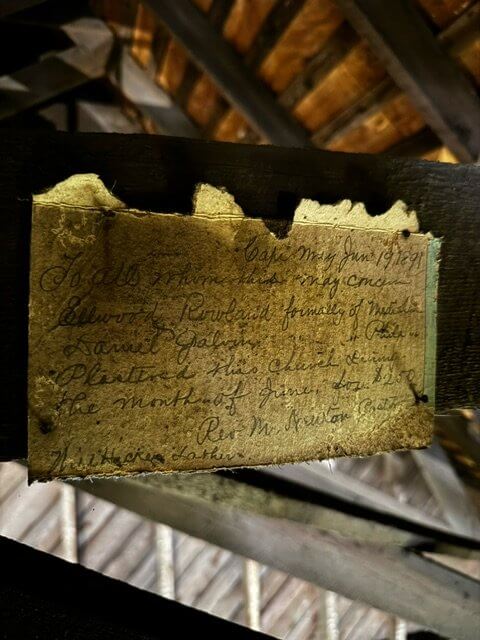 Cape May Jun 19 1891
To all whom this may concern
Ellwood Rowland formally of
Daniel Galvin " Phila "
Plastered this Church During
the month of June, for $200
Rev M. Newton Pastor
Will Hacken Lather